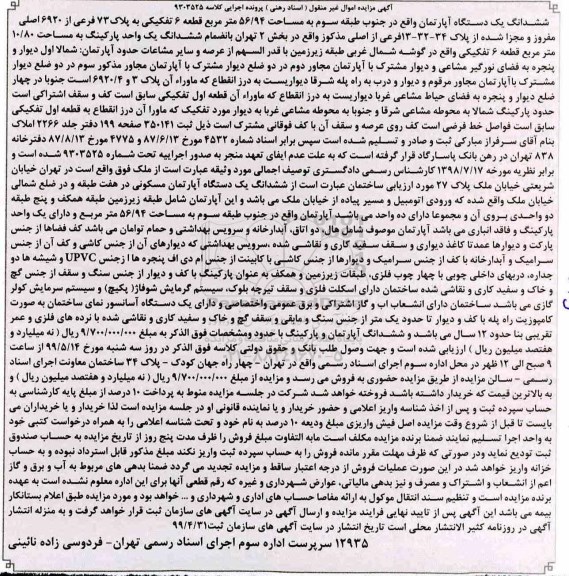 آگهی مزایده اموال غیر منقول ( اسناد رهنی ) پرونده اجرایی کلاسه ۹۳۰۳۵۲۵
ششدانگ یک دستگاه آپارتمان واقع در جنوب طبقه سوم به مساحت ۵۶/۹۴ متر مربع قطعه ۶ تفکیکی به پلاک ۷۳ فرعی از ۶۹۲۰ اصلی
مفروز و مجزا شده از پلاک ۳۴-۳۲-۱۳فرعی از اصلی مذکور واقع در بخش ۲ تهران بانضمام ششدانگ یک واحد پارکینگ به مساحت ۱۰/۸۰
متر مربع قطعه ۶ تفکیکی واقع در گوشه شمال غربی طبقه زیرزمین با قدر السهم از عرصه و سایر مشاعات حدود آپارتمان: شمالا اول دیوار و
پنجره به فضای نورگیر مشاعی و دیوار مشترک با آپارتمان مجاور دوم در دو ضلع دیوار مشترک با آپارتمان مجاور مذکور سوم در دو ضلع دیوار
مشترک باآپارتمان مجاور مرقوم و دیوار و درب به راه پله شرقا دیواریست به درز انقطاع که ماوراء آن پلاک ۳ و ۶۹۲۰/۴ است جنوبا در چهار
ضلع دیوار و پنجره به فضای حیاط مشاعی غربا دیواریست به درز انقطاع که ماوراء آن قطعه اول تفکیکی سابق است کف و سقف اشتراکی است
حدود پارکینگ شمالا به محوطه مشاعی شرقا و جنوبا به محوطه مشاعی غربا به دیوار مورد تفکیک که ماورا آن درز انقطاع به قطعه اول تفکیکی
سابق است فواصل خط فرضی است کف روی عرصه و سقف آن با کف فوقانی مشترک است ذیل ثبت ۳۵۰۱۴۱ صفحه ۱۹۹ دفتر جلد ۲۲۶۶ املاک
بنام آقای سرفراز مبارکی ثبت و صادر و تسلیم شده است سپس برابر اسناد شماره ۴۵۳۲ مورخ ۸۷/۶/۱۳ و ۴۷۷۵ مورخ ۸۷/۸/۱۳ دفترخانه
۸۳۸ تهران در رهن بانک پاسارگاد قرار گرفته است که به علت عدم ایفای تعهد منجر به صدور اجراییه تحت شماره ۹۳۰۳۵۲۵ شده است و
برابر نظریه مورخه ۱۳۹۸/۷/۱۷ کارشناس رسمی دادگستری توصیف اجمالی مورد وثیقه عبارت است از ملک فوق واقع است در تهران خیابان
شریعتی خیابان ملک پلاک ۲۷ مورد ارزیابی ساختمان عبارت است از ششدانگ یک دستگاه آپارتمان مسکونی در هفت طبقه و در ضلع شمالی
خیابان ملک واقع شده که ورودی اتومبیل و مسیر پیاده از خیابان ملک می باشد و این آپارتمان شامل طبقه زیرزمین طبقه همکف و پنج طبقه
دو واحدی بروی آن و مجموعا دارای ده واحد می باشد آپارتمان واقع در جنوب طبقه سوم به مساحت ۵۶/۹۴ متر مربع و دارای یک واحد
پارکینگ و فاقد انباری می باشد آپارتمان موصوف شامل هال، دو اتاق، آبدارخانه و سرویس بهداشتی و حمام توامان می باشد کف فضاها از جنس
پارکت و دیوارها عمدتا کاغذ دیواری و سقف سفید کاری و نقاشی شده ،سرویس بهداشتی که دیوارهای آن از جنس کاشی و کف آن از جنس
سرامیک و آبدارخانه با کف از جنس سرامیک و دیوارها از جنس کاشی با کابینت از جنس ام دی اف پنجره ها ازجنس UPVC و شیشه ها دو
جداره، دربهای داخلی چوبی با چهار چوب فلزی. طبقات زیرزمین و همکف به عنوان پارکینگ با کف و دیوار از جنس سنگ و سقف از جنس گچ
و خاک و سفید کاری و نقاشی شده ساختمان دارای اسکلت فلزی و سقف تیرچه بلوک، سیستم گرمایش شوفاژ( پکیج) و سیستم سرمایش کولر
گازی می باشد ساختمان دارای انشعاب اب و گاز اشتراکی و برق عمومی واختصاصی و دارای یک دستگاه آسانسور نمای ساختمان به صورت
کامپوزیت راه پله با کف و دیوار تا حدود یک متر از جنس سنگ و مابقی و سقف گچ و خاک و سفید کاری و نقاشی شده با نرده های فلزی و عمر
تقریبی بنا حدود ۱۲ سال می باشد و ششدانگ آپارتمان و پارکینگ با حدود ومشخصات فوق الذکر به مبلغ ۹/۷۰۰/۰۰۰/۰۰۰ ریال ( نه میلیارد و
هفتصد میلیون ریال ) ارزیابی شده است و جهت وصول طلب بانک و حقوق دولتی کلاسه فوق الذکر در روز سه شنبه مورخ ۹۹/۵/۱۴ از ساعت
۹ صبح الی ۱۲ ظهر در محل اداره سوم اجرای اسناد رسمی واقع در تهران - چهار راه جهان کودک - پلاک ۳۴ ساختمان معاونت اجرای اسناد
رسمی - سالن مزایده از طریق مزایده حضوری به فروش می رسد و مزایده از مبلغ ۹/۷۰۰/۰۰۰/۰۰۰ ریال ( نه میلیارد و هفتصد میلیون ریال ) و
به بالاترین قیمت که خریدار داشته باشد فروخته خواهد شد شرکت در جلسه مزایده منوط به پرداخت ۱۰ درصد از مبلغ پایه کارشناسی به
حساب سپرده ثبت و پس از اخذ شناسه واریز اعلامی و حضور خریدار و یا نماینده قانونی او در جلسه مزایده است لذا خریدار و یا خریداران می
بایست تا قبل از شروع وقت مزایده اصل فیش واریزی مبلغ ودیعه ۱۰ درصد به نام خود و تحت شناسه اعلامی را به همراه درخواست کتبی خود
به واحد اجرا تسلیم نمایند ضمنا برنده مزایده مکلف است مابه التفاوت مبلغ فروش را ظرف مدت پنج روز از تاریخ مزایده به حساب صندوق
ثبت تودیع نماید ودر صورتی که ظرف مهلت مقرر مانده فروش را به حساب سپرده ثبت واریز نکند مبلغ مذکور قابل استرداد نبوده و به حساب
خزانه واریز خواهد شد در این صورت عملیات فروش از درجه اعتبار ساقط و مزایده تجدید می گردد ضمنا بدهی های مربوط به آب و برق و گاز
اعم از انشعاب و اشتراک و مصرف و نیز بدهی مالیاتی، عوارض شهرداری و غیره که رقم قطعی آنها برای این اداره معلوم نشده است به عهده
برنده مزایده است و تنظیم سند انتقال موکول به ارائه مفاصا حساب های اداری و شهرداری و ... خواهد بود و مورد مزایده طبق اعلام بستانکار
بیمه می باشد این آگهی پس از تایید نهایی فرایند مزایده و ارسال آگهی در سایت آگهی های سازمان ثبت قرار خواهد گرفت و به منزله انتشار
آگهی در روزنامه کثیر الانتشار محلی است تاریخ انتشار در سایت آگهی های سازمان ثبت۹۹/۴/۳۱
۱۲۹۳۵ سرپرست اداره سوم اجرای اسناد رسمی تهران- فردوسی زاده نائینی